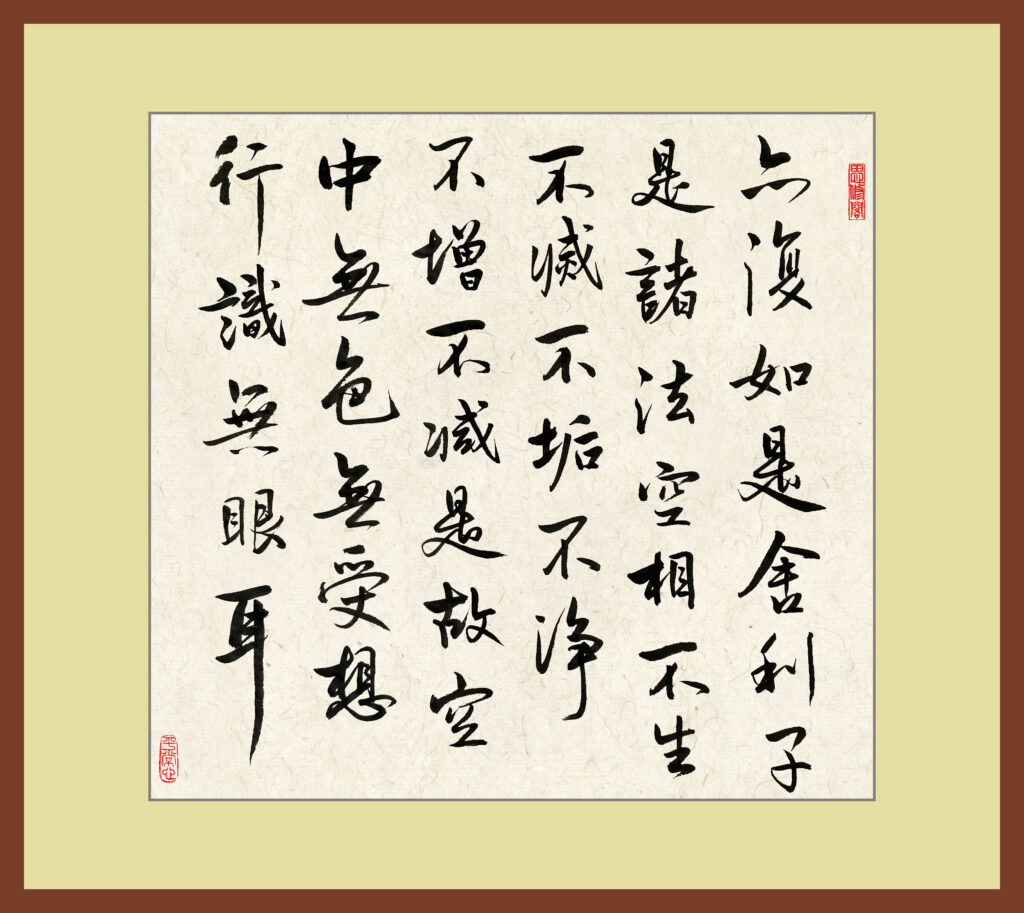 亦復如是舍利子
是諸法空相不生
不滅不垢不淨
不增不減是故空
中無色無受想
行識無眼耳
思脩閣
平常心